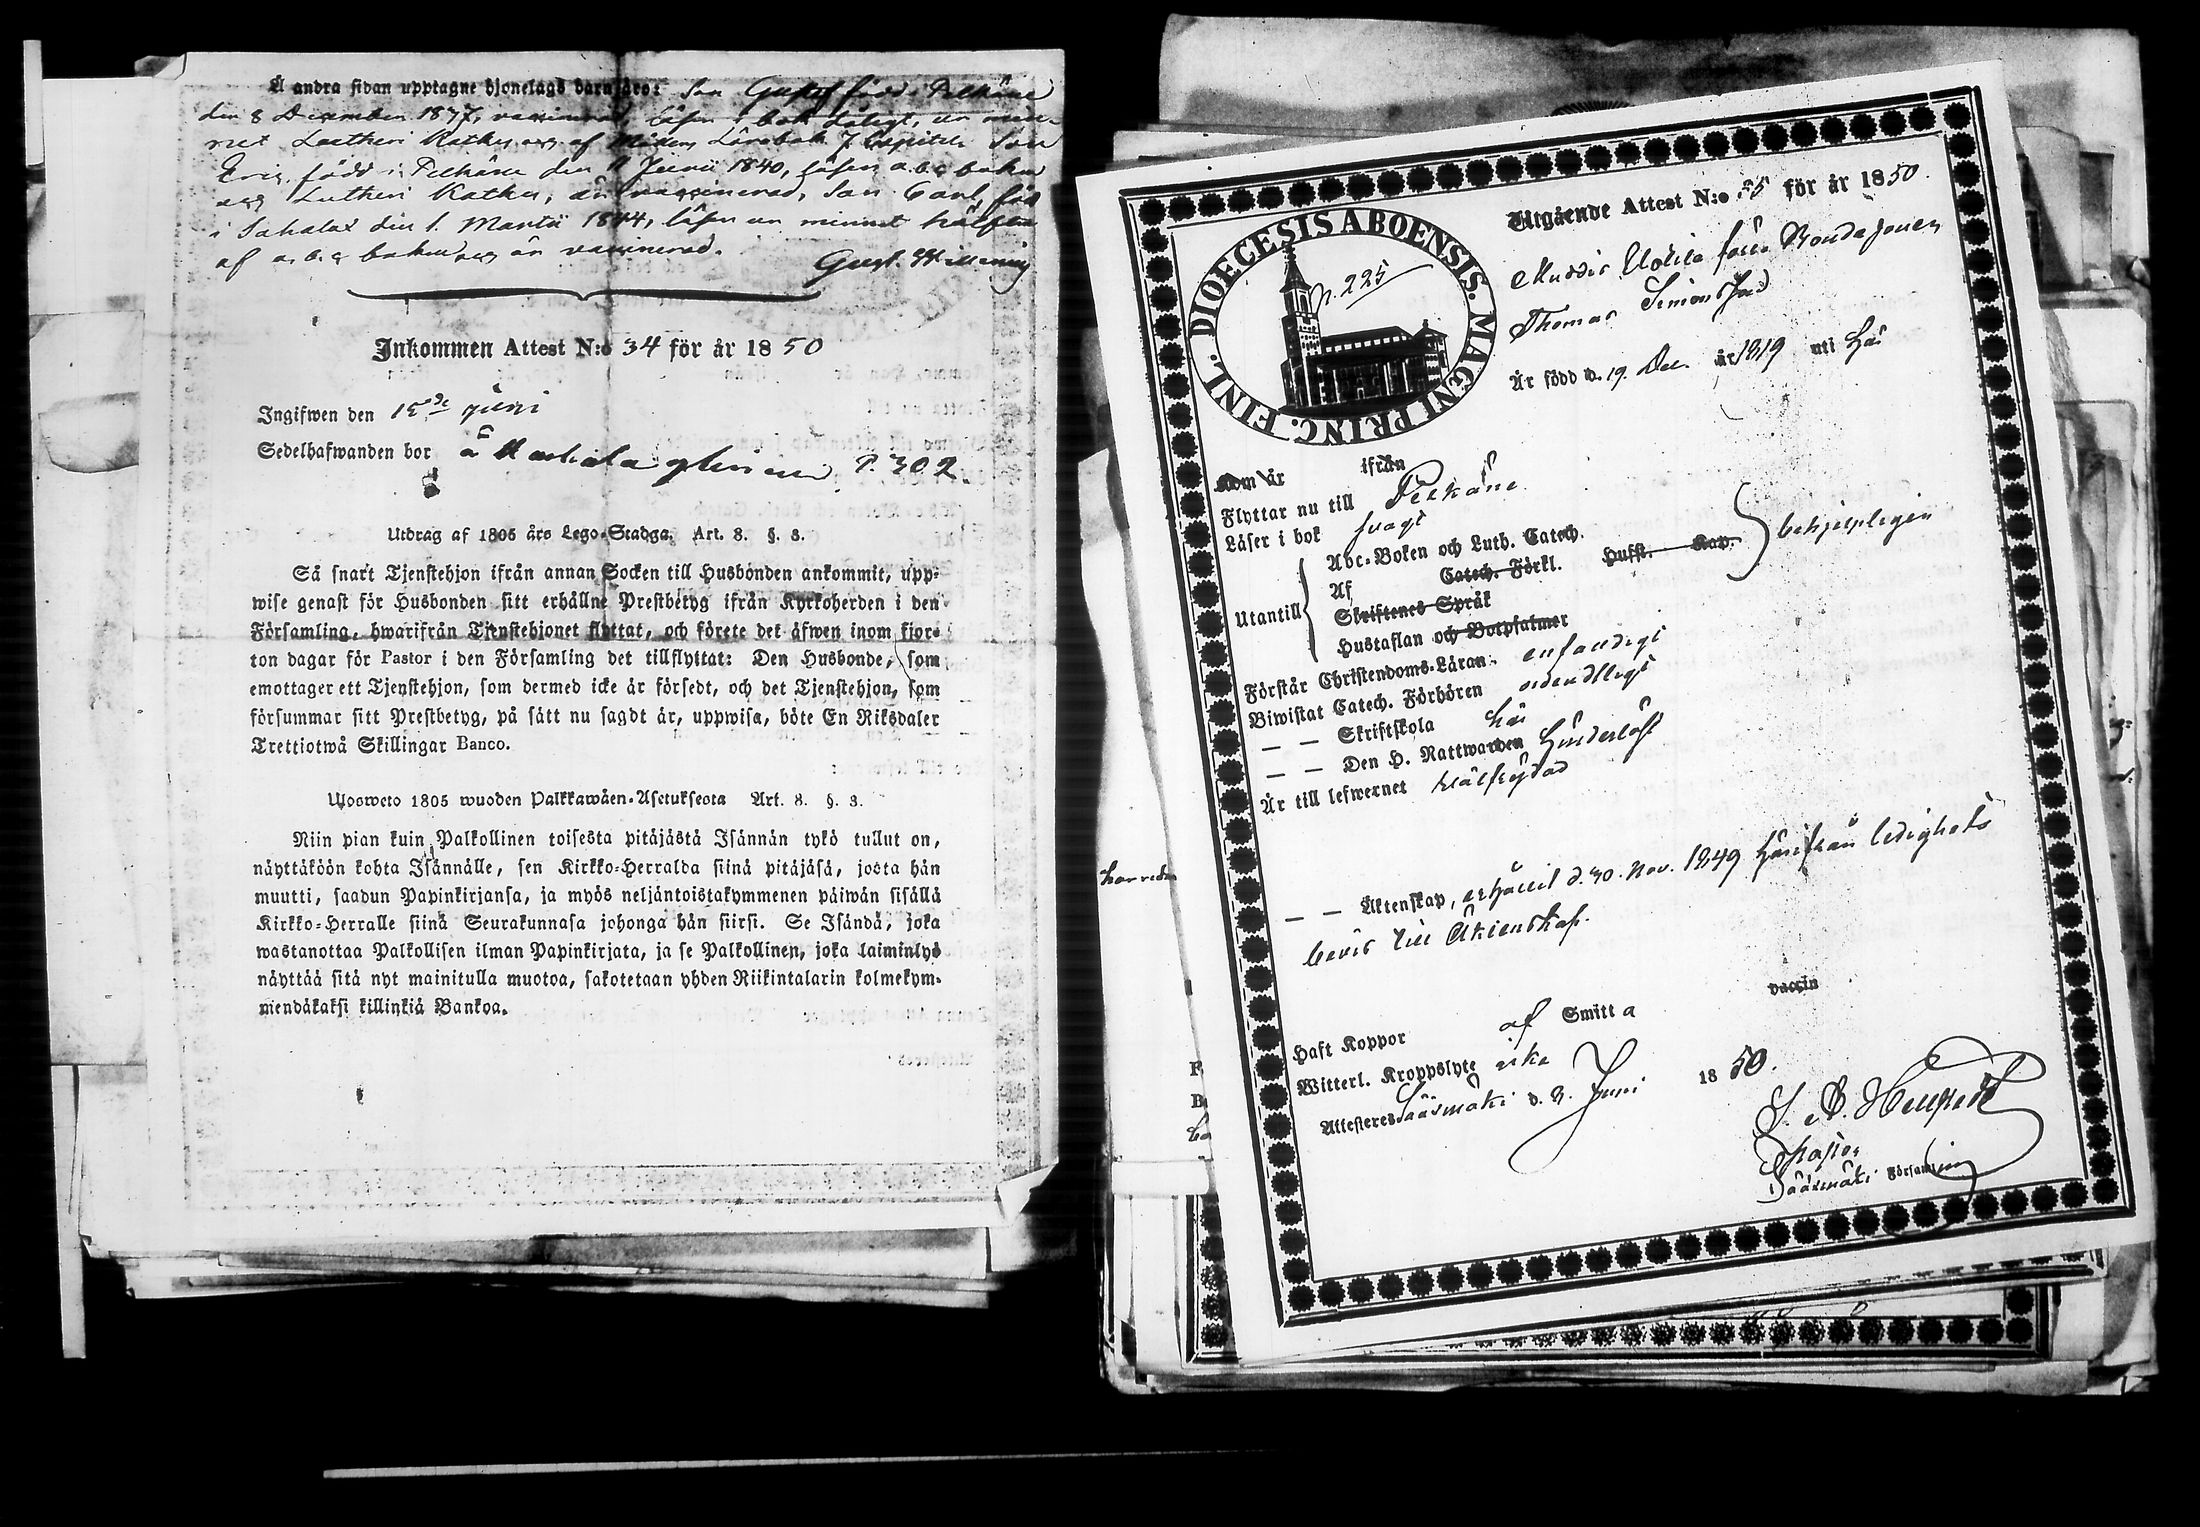 Å andra sidan upptagne hjonelags barn äro: Son Gustaf född i Pelkäne
den 8 December 1837, vaccinerad, läser i bok
net Lutheri Kathes och af Lärobok 7 Capitel. Son
Eric, född i Pelkäne den Junii 1840, läser a.b.c boken
och Lutheri Kathes, är vaccinerad, Son Carl, född
i Sahalax den 1. Martii 1844, läser ur minnet hälften
af a.b.c boken, och är vaccinerad.
Gust.
Inkommen Attest N:o 34 för år 1850
Ingifwen den 15de Juni
Sedelhafwanden bor å P. 302
Utdrag af 1805 års Lego-Stadga. Art. 8. §. 3.
Så snart Tjenstehjon ifrån annan Socken till Husbonden ankommit, upp-
wise genast för Husbonden sitt erhållne Prestbetyg ifrån Kyrkoherden i den
Församling, hwarifrån Tjenstehjonet flyttat, och förete det äfwen inom fjor-
ton dagar för Pastor i den Församling det tillflyttat: Den Husbonde, som
emottager ett Tjenstehjon, som dermed icke är försedt, och det Tjenstehjon, som
försummar sitt Prestbetyg, på sätt nu sagdt är, uppwisa, böte En Riksdaler
Trettiotwå Skillingar Banco.
Ulosweto 1805 wuoden Palkkawäen-Asetuksesta Art. 8. §. 3.
Niin pian kuin Palkollinen toisesta pitäjästä Isännän tykö tullut on,
näyttäköön kohta Isännälle, sen Kirkko-Herralda siinä pitäjäsä, josta hän
muutti, saadun Papinkirjansa, ja myös neljäntoistakymmenen päiwän sisällä
Kirkko-Herralle siinä Seurakunnasa johonga hän siirsi. Se Isändä, joka
wastanottaa Palkollisen ilman Papinkirjata, ja se Palkollinen, joka laiminlyö
näyttää sitä nyt mainitulla muotoa, sakotetaan yhden Riikintalarin kolmekym-
mendäkaksi killinkiä Bankoa.
DIOECESIS ABOENSIS. MAGNI PRINC. FINL.
p. 225
Utgående Attest N:o 55 för år 1850.
Uotila förre Bondesonen
Thomas Simonsson
Är född d. 19. Dec. år 1819 uti här
Kom år ifrån
Flyttar nu till Pelkäne
Läser i bok svagt
Utantill
Abc-Boken och Luth. Catech.
Af Catech. Förkl. Husfl. Kap.
Skriftenes Språk
Hustaflan och Botpsalmer
behjelpligen
Förstår Christendoms-Läran enfaldigt
Biwistat Catech. Förhören ordentligt
— — Skriftskola här
— — Den H. Nattwarden hinderlöst
Är till lefwernet wälfrejdad
— — Äktenskap, erhållit d. 30. Nov. 1849 härifrån ledighets
bevis till Äktenskap.
Haft Koppor af Smitta vaccin
Witterl. Kroppslyte icke
Attesteres Sääsmäki d. 3. Juni 1850.
Pastor
Sääsmäki Församling